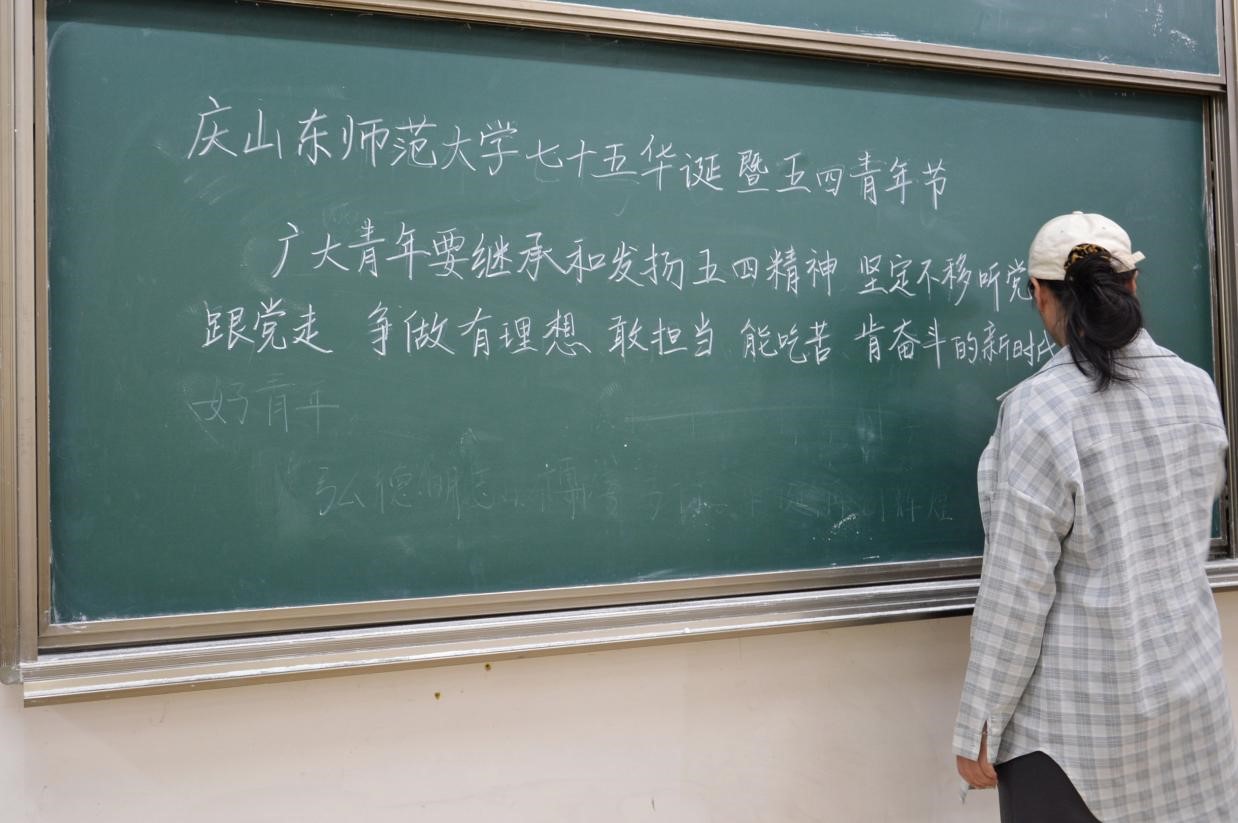 庆山东师范大学七十五华诞暨五四青年节
广大青年要继承和发扬五四精神 坚定不移听党
跟党走 争做有理想 敢担当 能吃苦 肯奋斗的新时代
好青年
弘德明志 博